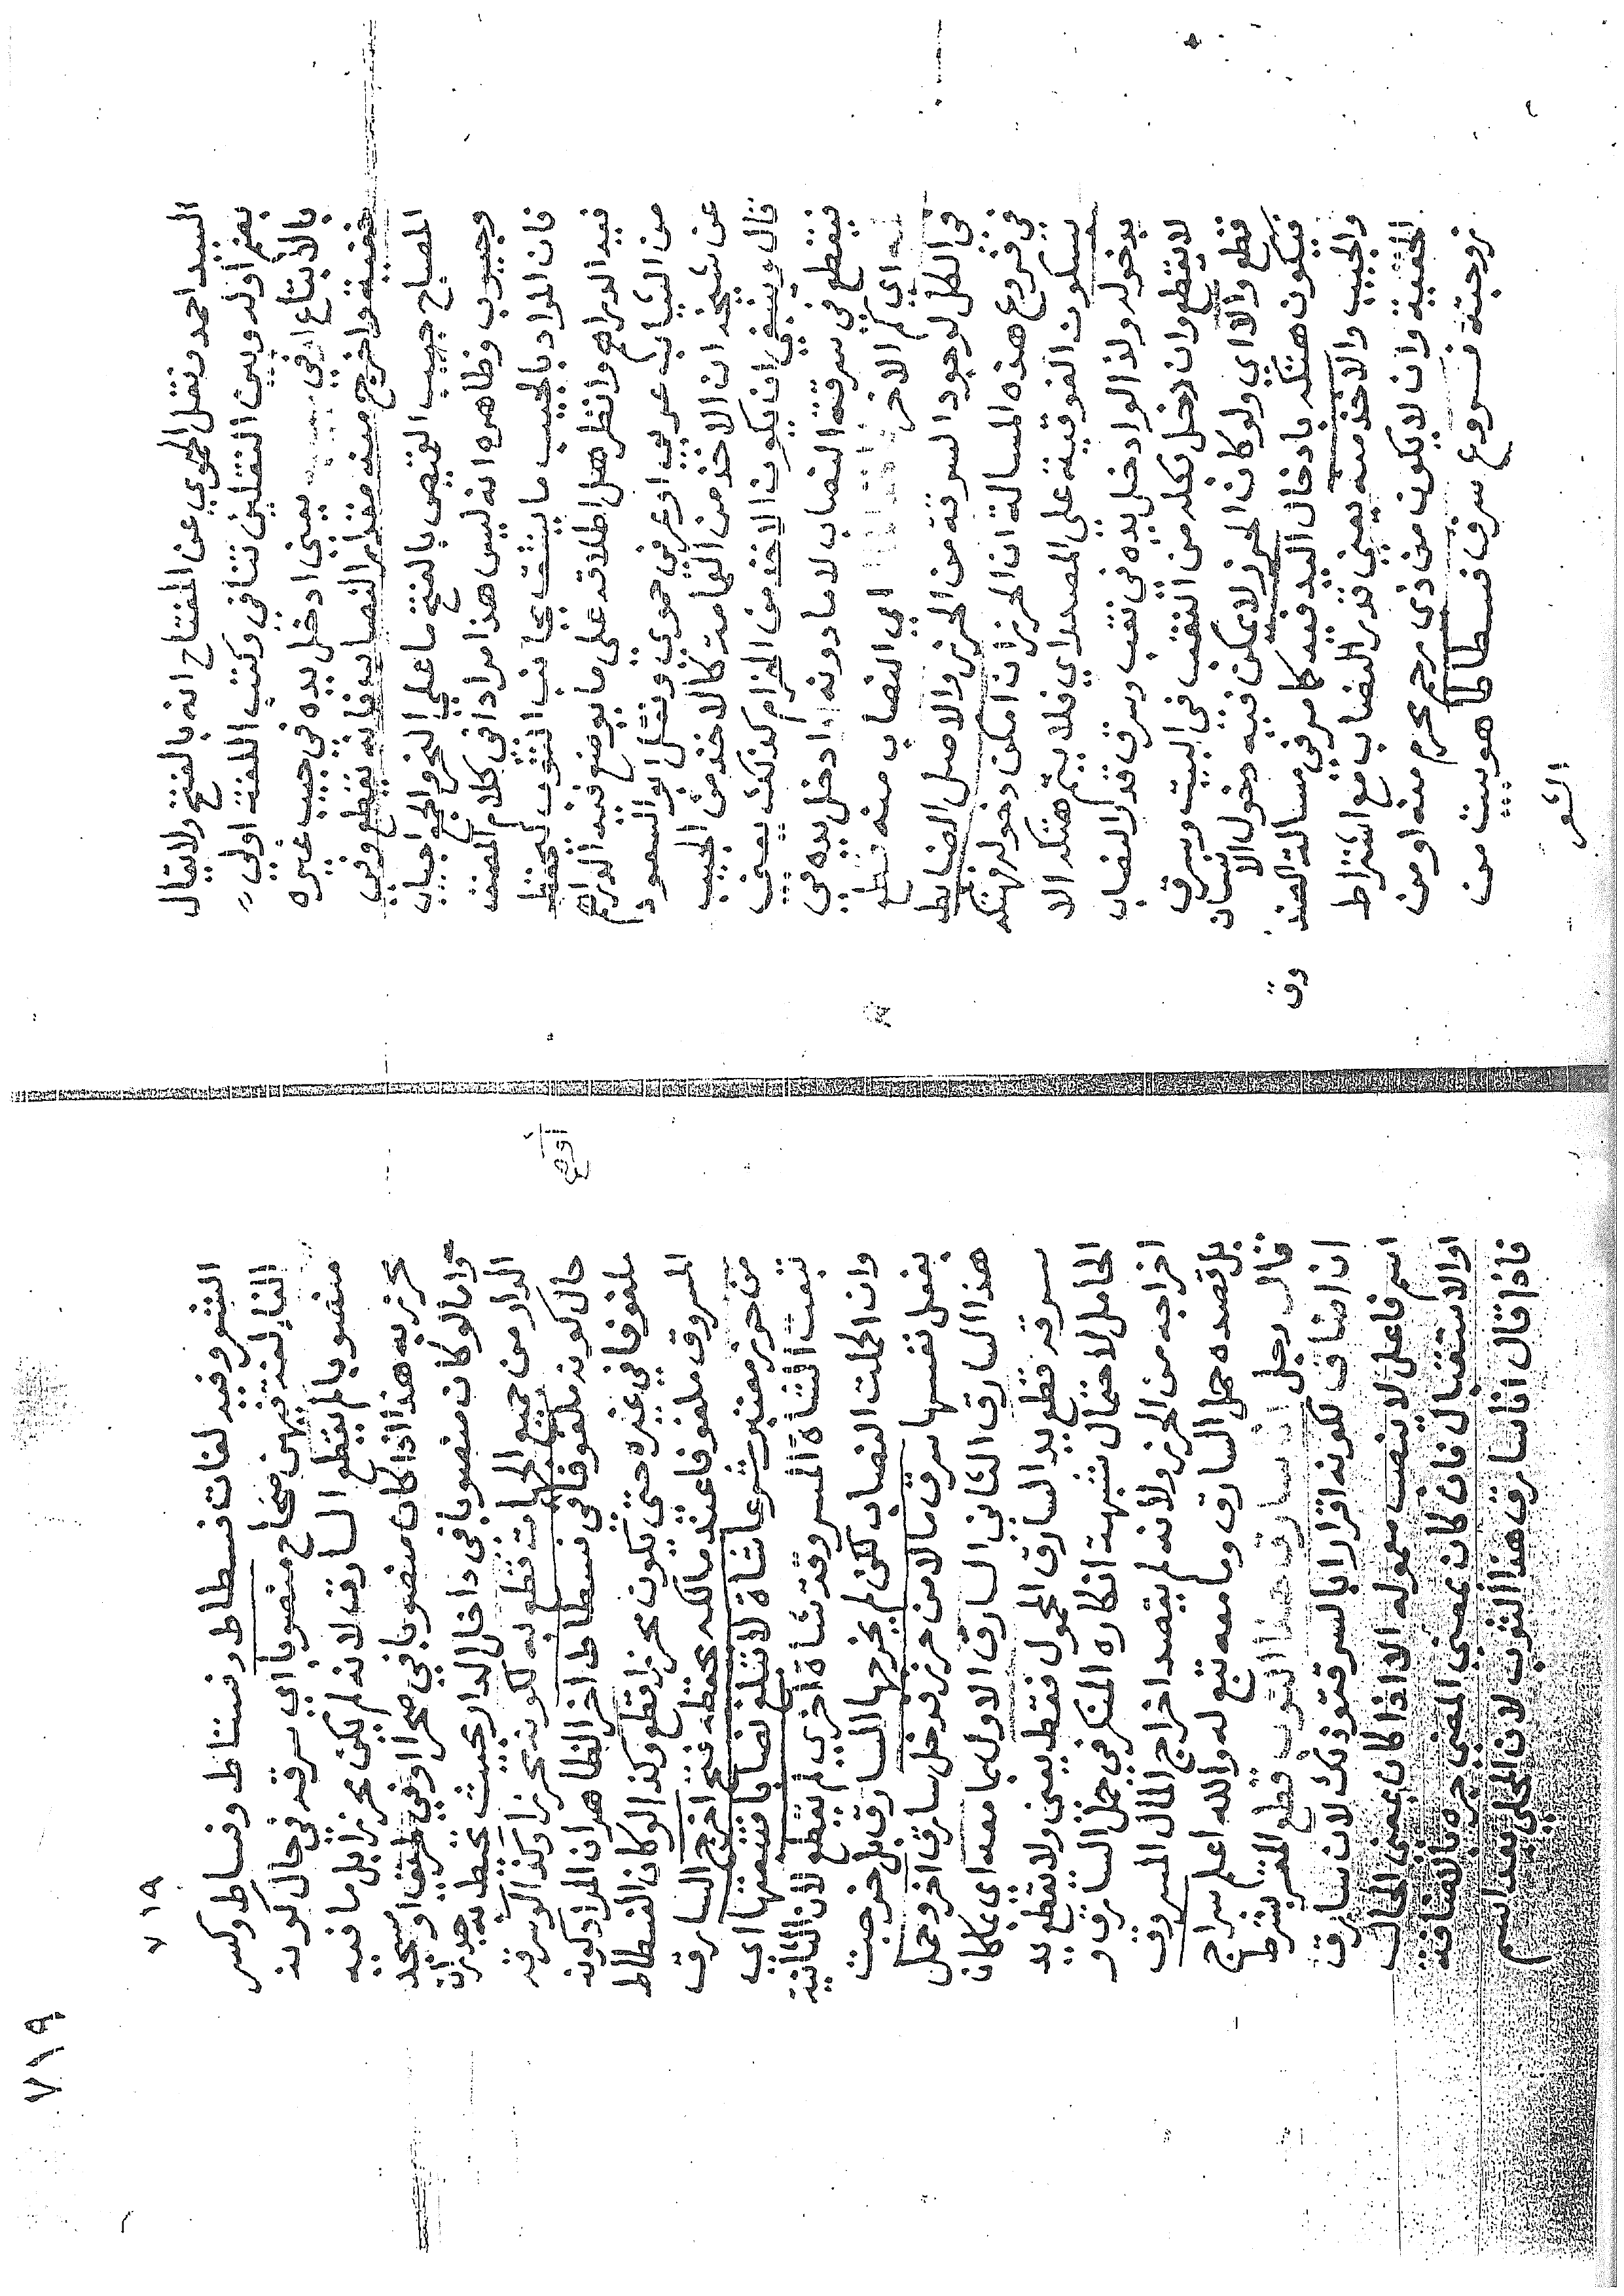 السيد احمد ونقل الحموي عن المفتاح انه بالفتح ولا يقال
بضم أوله وبين النقلين تنافي وكتب اللغة اولي
بالاتباع اوفي يعني ادخل يده في جيب غيره
خفية واخرج منه مقدار النصاب فانه يقطع وفي
المصباح جيب القميص بالفتح ما على النحر والجمع اجياب
وجيوب وظاهره انه ليس هذا مرادا في كلام المصنف
فان المراد بالجيب ما يشق بجانب الثوب لتحفظ
فيه الدراهم وانظر هل اطلاقه على ما يوضع فيه الدراهم
من الثياب عربي او عرفي حموي ونقل ابو السعود
عن شيخه ان الاخذ من العمامة كالاخذ من الجيب
قال وينبغي ان يكون الاخذ من الحزام كذلك يعني
فيقطع في سرقة النصاب لا ما دونه ادخل يده في
كم اي كم الاخر اي النصاب منه قطع
في الكل لوجود السرقة من الحرز والاصل الضابط
في فروع هذه المسالة ان الحرز ان امكن دخوله فهتكه
بسكون الفوقية على المصدر اي فلا يتم هتكه الا
بدخوله ولذا لو ادخل يده في نقب وسرق قدر النصاب
لا يقطع وان دخل بكله من النقب في البيت وسرق
قطع والا اي ولو كان الحرز لا يمكن فيه دخول الانسان
فيكون هتكه بادخال اليد فيه كما مر في مسالة الصندوق
والجيب والاخذ منه يعني قدر النصاب مع اشتراط
الخفية وان لا يكون من ذي رحم محرم منه او من
زوجته فسروع سرق فسطاطا هو بيت من
الشعر
٧١٩
٧١٩
الشعر وفيه لغات فسطاط وفستاط وفساط وكسر
الفاء لغة فيهن صحاح منصوبا اي سرقه في حال كونه
منصوبا لم يقطع السارق لانه لم يكن محرزا بل ما فيه
محرز به هذا اذا كان منصوبا في صحرا او في طريق او مسجد
واما لو كان منصوبا في داخل الدار بحيث تحيط به جدران
الدار من جميع الجهات فقطع به لكونه محرزا وكذا لو سرقه
حال كونه ملفوفا في فسطاط اخر الظاهر ان المراد كونه
ملفوفا في غيره حتى يكون محرزا قطع وكذا لو كان الفسطاط
المسروق ملفوفا عند مالكه يحفظه فتح اخرج السارق
من حرز معتبر شرعا شاة لا تبلغ نصابا قيمتها اي
تبعت الشاة المسروقة شاة اخرى لم يقطع لان الثانية
وان اكملت النصاب لكن لم يخرجها السارق بل خرجت
بفعل نفسها سرق مالا من حرز فدخل سارق اخر وحمل
هذا السارق الثاني السارق الاول بما معه اي بما كان
سرقه قطع يد السارق المحمول فقط يعني ولا يقطع يد
الحامل لاحتمال شبهة انكاره المنكر في حمل السارق و
اخراجه من الحرز ولانه لم يقصد اخراج المال المسروق
بل قصده حمل السارق وما معه تبع له والله اعلم سراج
قال رجل انا سارق هذا الثوب قطع المقر بشرط
ان اضاف لكونه اقرارا بالسرقة وذلك لان سارق
اسم فاعل لا ينصب معموله الا اذا كان بمعنى الحال
او الاستقبال فان كان بمعنى المضي جره بالاضافة
فاذا قال انا سارق هذا الثوب لان المحلي بعد اسم